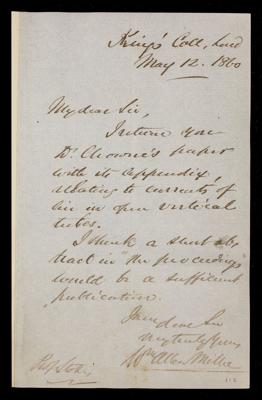 King's Coll, Lond
May 12. 1860
My dear Sir,
I return you
Dr Chowne's paper
with its appendix,
relating to currents of
air in open vertical
tubes.
I think a short abs-
tract in "the proceedings"
would be a sufficient
publication.
I am
dear Sir
very truly yours
Wm Allen Miller
Prof Stokes